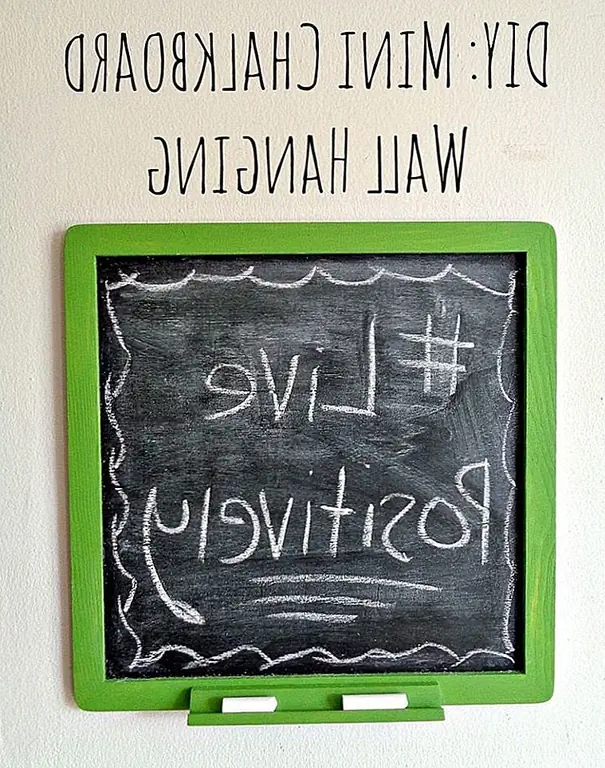 DIY: MINI CHALKBOARD
WALL HANGING
#Live
Positively